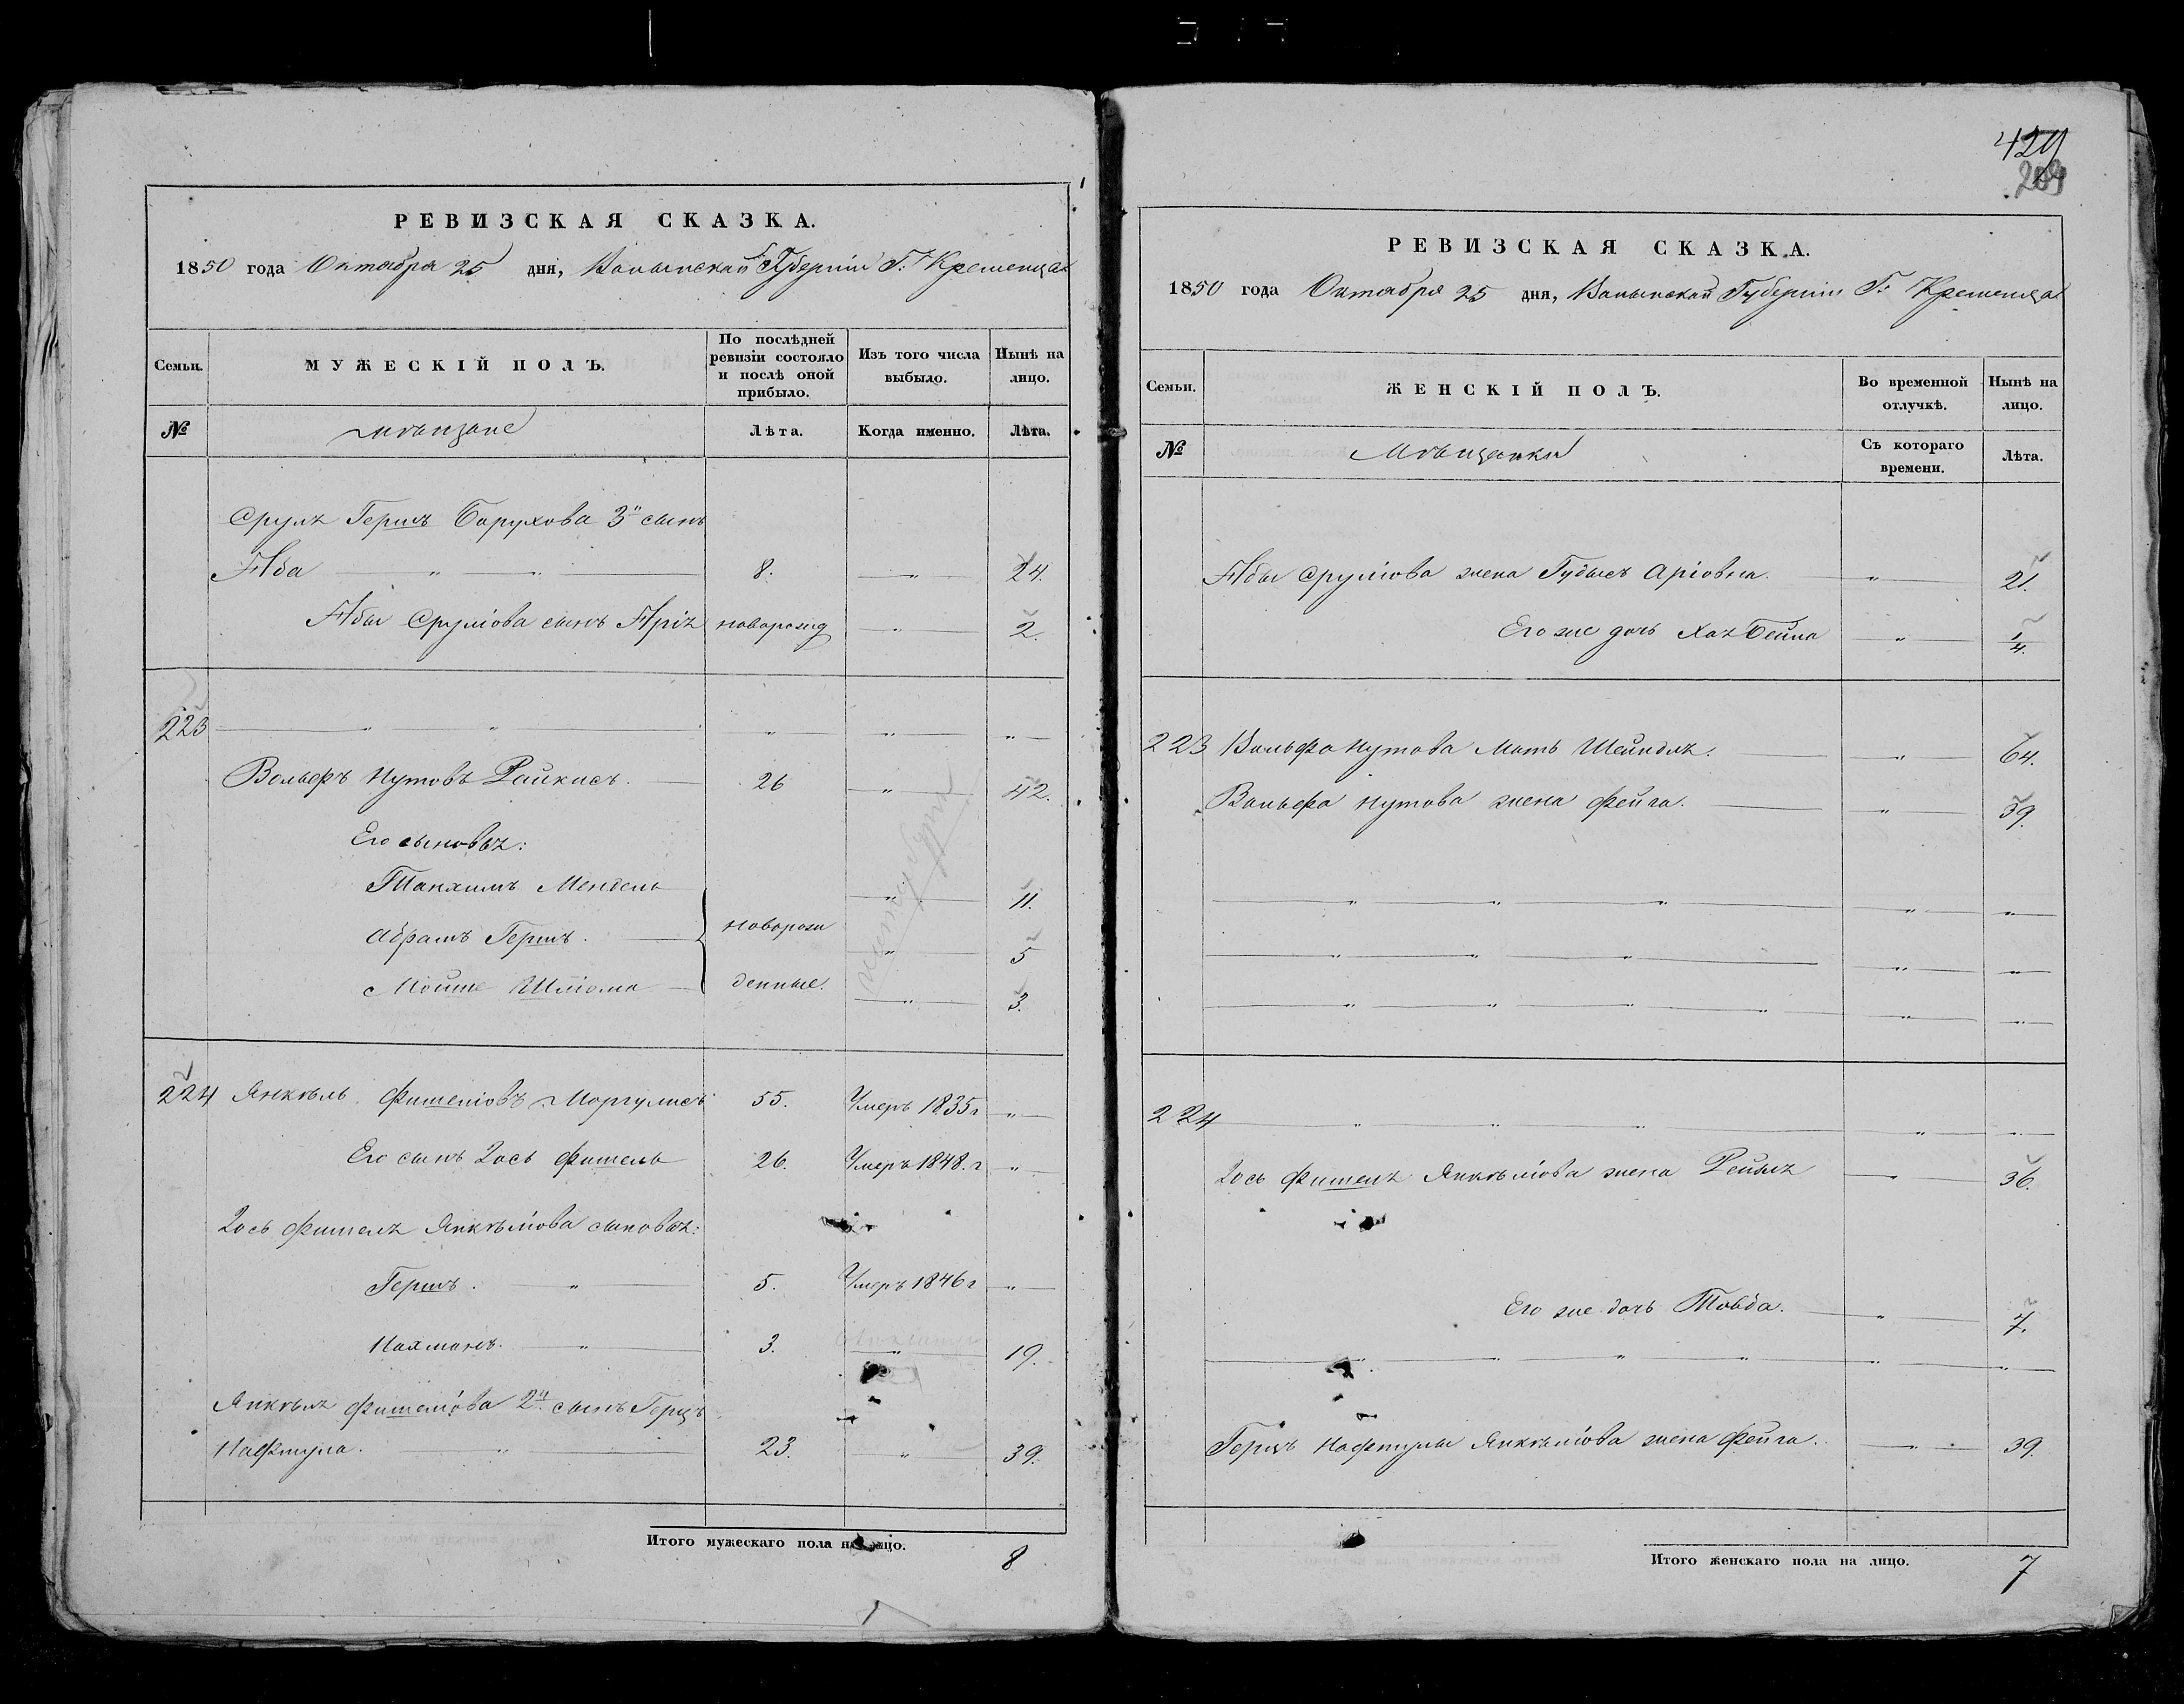 РЕВИЗСКАЯ СКАЗКА.
1850 года Октября 25 дня, Волынской Губерніи Г. Кременца
Семьи. МУЖЕСКІЙ ПОЛЪ. По послѣдней ревизіи состояло и послѣ оной прибыло. Изъ того числа выбыло. Нынѣ на лицо.
№ мѣщане Лѣта. Когда именно. Лѣта.
Сруля Герша Борухова 3й сынъ
Аба " " 8. " 24.
Абы Срулiова сынъ Арiя новорожд " 2.
223 " " " " "
Вольфъ Нутовъ Райкисъ. 26 " 42.
Его сыновья:
Танхимъ Мендель " 11.
Абрамъ Гершъ. новорож " 5
Мойше Шлiома денные. " 3.
224 Янкель Фишелiовъ Моргулисъ 55. Умеръ 1835г "
Его сынъ Iось Фишель 26. Умеръ 1848.г "
Iось Фишеля Янкелiова сыновья:
Гершъ. " 5. Умеръ 1846г "
Нахманъ. " 3. " 19.
Янкеля Фишелiова 2й сынъ Герцъ
Нафтула. " 23. " 39.
Итого мужескаго пола на лицо. 8
429
РЕВИЗСКАЯ СКАЗКА.
1850 года Октября 25 дня, Волынской Губерніи Г. Кременца
Семьи. ЖЕНСКІЙ ПОЛЪ. Во временной отлучкѣ. Нынѣ на лицо.
№ Мѣщанки Съ котораго времени. Лѣта.
Абы Срулiова жена Гудысъ Арiовна. " 21.
Его же дочь Хая Бейла " 1/4.
223 Вольфа Нутова Мать Шейндля. " 64.
Вольфа Нутова жена Фейга. " 39.
" " " " "
" " " " "
" " " " " "
224 " " " " "
Iось Фишеля Янкелiова жена Рейзля 36.
Его же дочь Товба. " 7.
" " " " " "
Герцъ Нафтулы Янкелiова жена Фейга. " 39.
Итого женскаго пола на лицо. 7